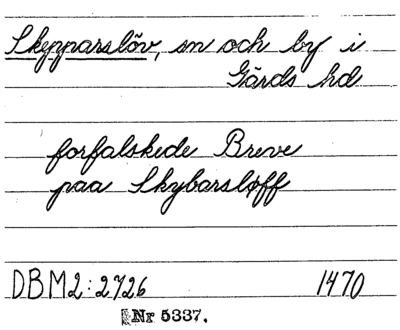 Skepparslöv, sn och by i
Gärds hd
forfalskede Breve
paa Skybarsløff
DBM2:2726 1470
Nr 5337.